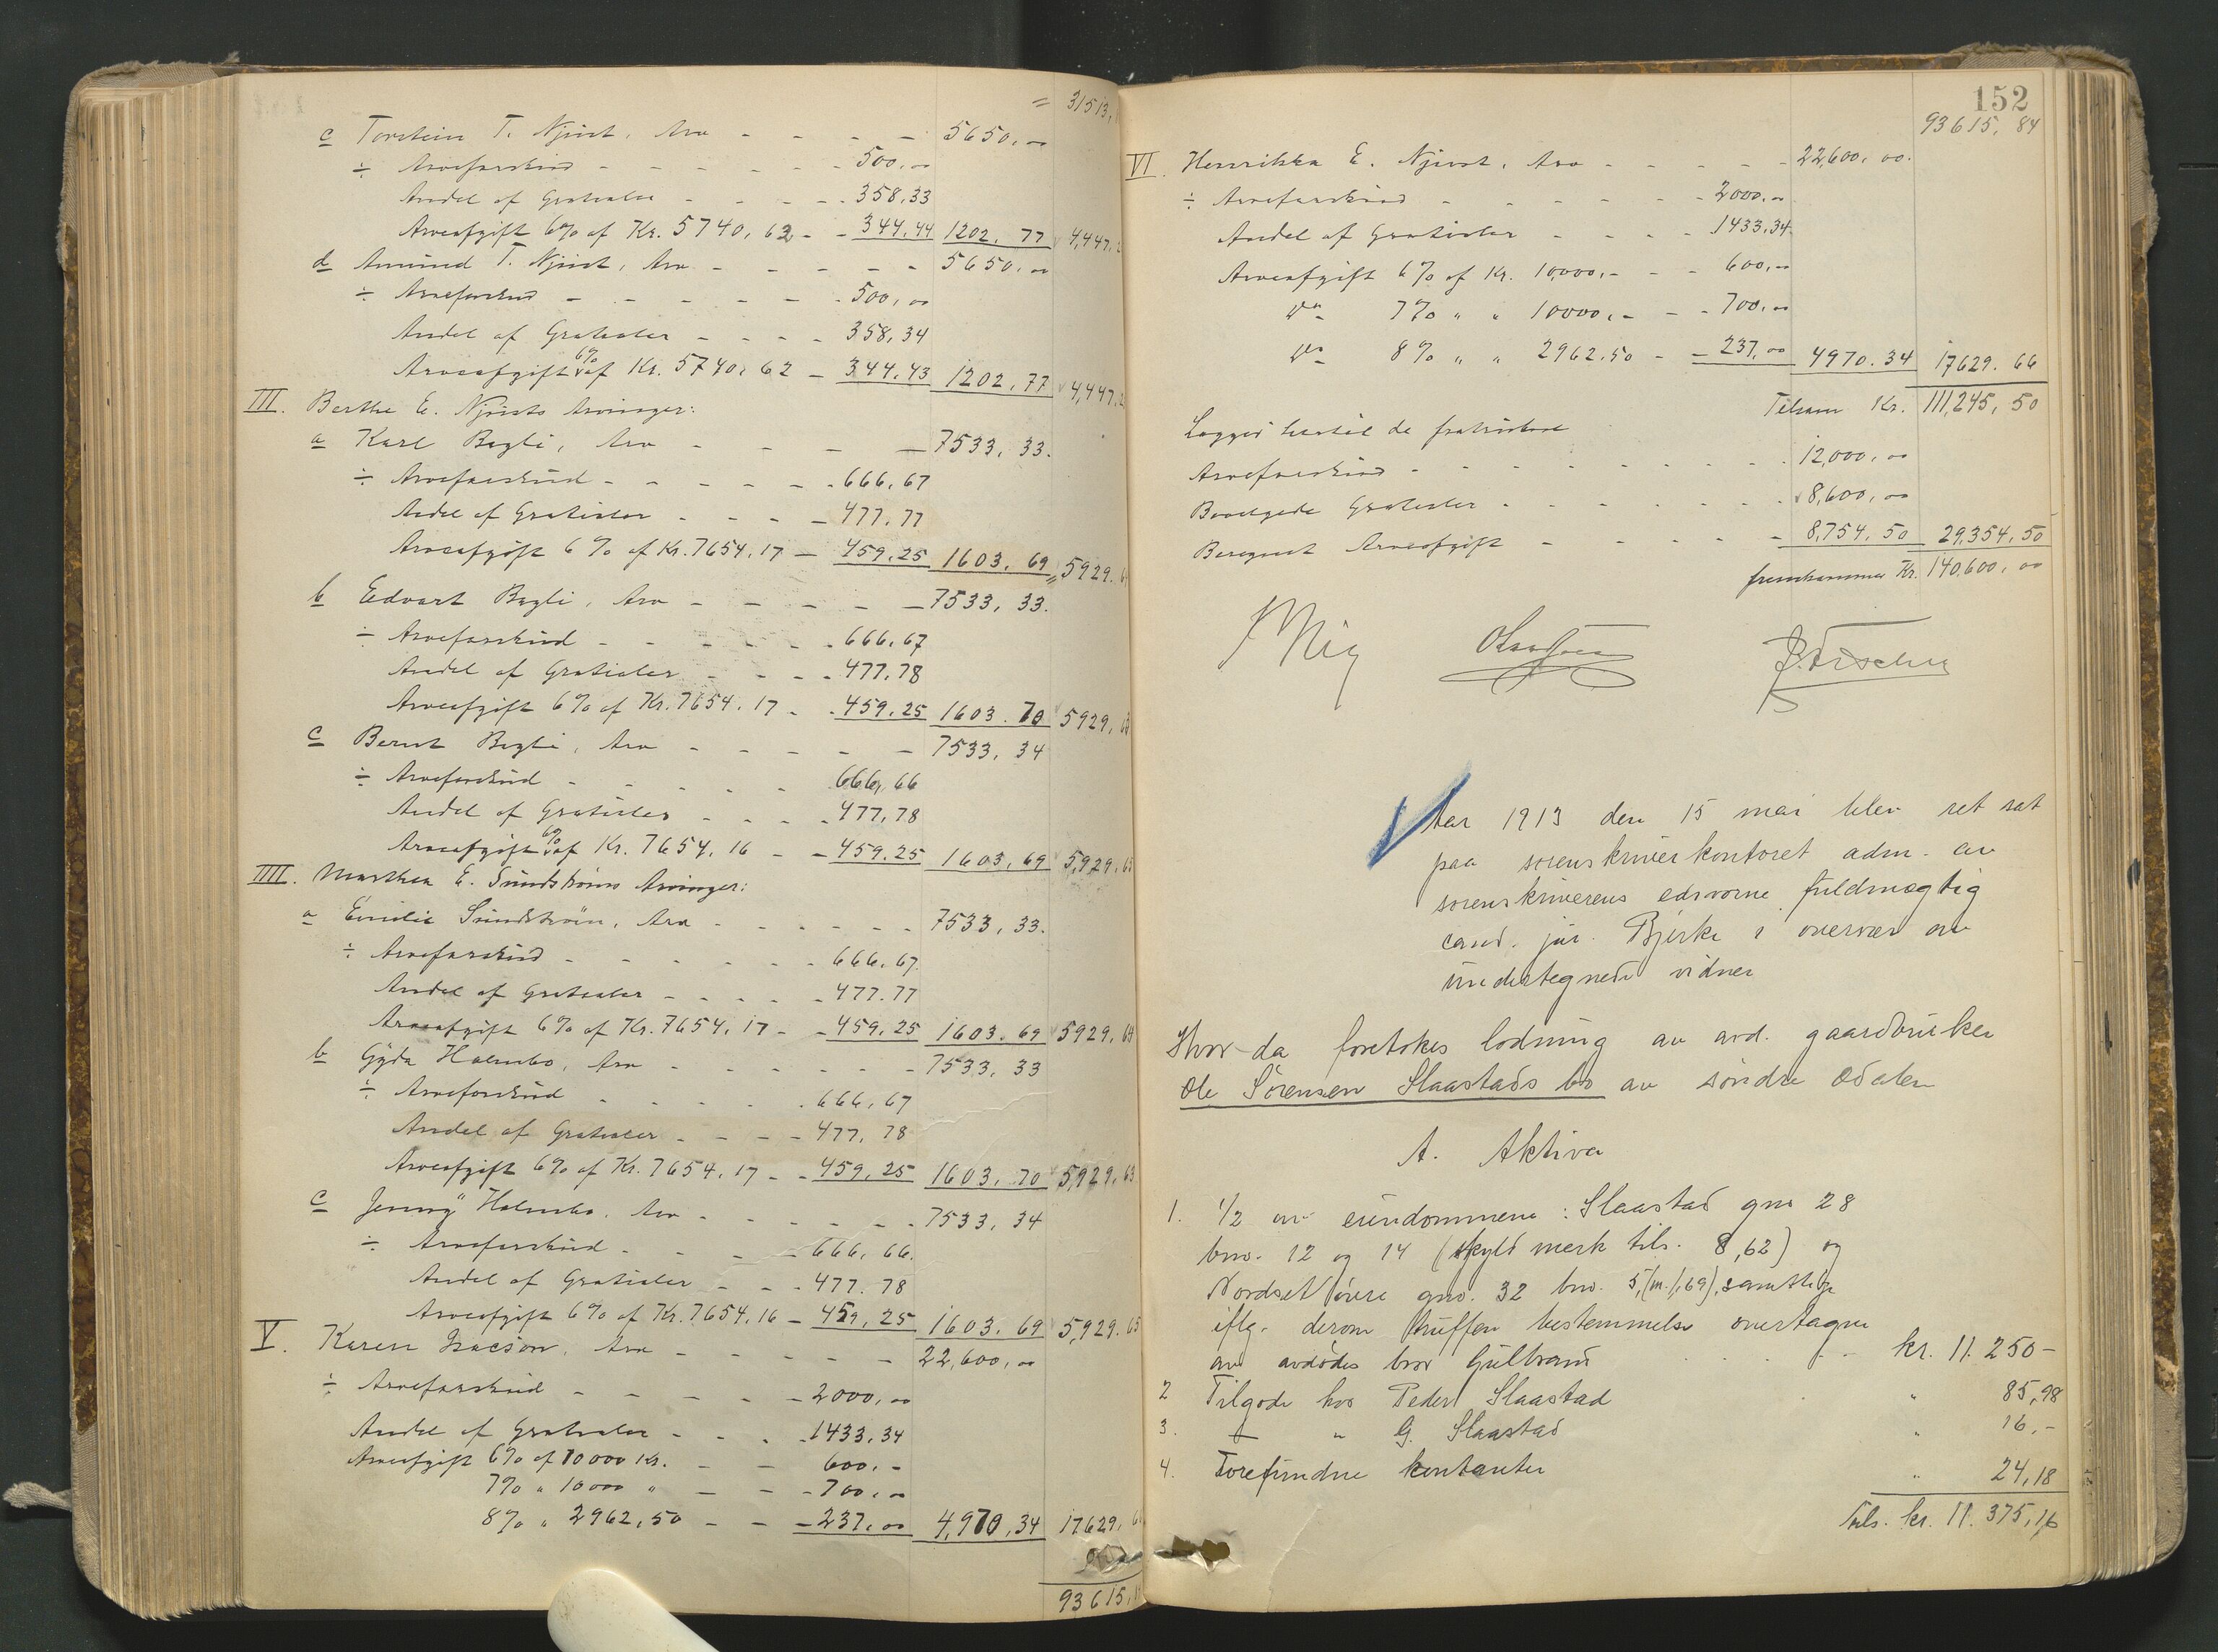 = 31513,
c Torstein T. Njust, Arv - - - - 5650,00
÷ Arveforskud - - - - - 500,00
Andel af Gratialer - - - - 358,33
Arveafgift 6% af Kr. 5740,62 - - 344,44 1202,77 4,447,2
d Amund T. Njust, Arv - - - - - 5650,00
÷ Arveforskud - - - - - 500,00
Andel af Gratialer - - - - 358,34
Arveafgift 6% af Kr. 5740,62 - 344,43 1202,77 4,447,2
III. Berthe E. Njusts Arvinger:
a Karl Bagli, Arv - - - - 7533,33.
÷ Arveforskud - - - - - 666,67
Andel af Gratialer - - - - 477,77
Arveafgift 6% af Kr. 7654,17 - 459,25 1603,69 5929,6
b Edvart Bagli, Arv - - - - - 7533,33.
÷ Arveforskud - - - - - 666,67
Andel af Gratialer - - - - 477,78
Arveafgift 6% af Kr. 7654,17 - - 459,25 1603.70 5929,63
c Bernt Bagli, Arv - - - - - 7533,34
÷ Arveforskud - - - - - 666,66
Andel af Gratialer - - - - 477,78
Arveafgift 6% af Kr. 7654,16 - - 459,25 1603,69 5,929,65
IIII. Marthea E. Sundstrøms Arvinger:
a Emilie Sundstrøm, Arv - - - - - 7533,33.
÷ Arveforskud - - - - - 666,67.
Andel af Gratialer - - - - 477.77
Arveafgift 6% af Kr. 7654,17 - - 459,25 1603.69 5929,64
b Gyda Holmbo, Arv - - - - - 7533,33
÷ Arveforskud - - - - 666,67
Andel af Gratialer - - - - 477,78
Arveafgift 6% af Kr. 7654,17 - - 459,25 1603,70 5,929,63
c Jenny Holmbo, Arv - - - - - 7533,34
÷ Arveforskud - - - - 666,66.
Andel af Gratialer - - - 477.78
Arveafgift 6% af Kr. 7654,16 - 459,25 1603.69 5,929.65
V. Karen Isacson, Arv - - - - - 22,600,00
÷ Arveforskud - - - - - 2000,00
Andel af Gratialer - - - - 1433,34
Arveafgift 6% af 10000 Kr. - - 600,-
7% " 10000 " - - - 700,00
8% " 2962,50 - - - 237,00 4,970,34 17629,6
93615,
152
93615,84
VI. Henrikka E. Njust, Arv - - - - - 22,600,00.
÷ Arveforskud - - - - - - 2000,00
Andel af Gratialer - - - - 1433,34
Arveafgift 6% af Kr. 10000,- - - 600,00
do 7% " " 10000,- - - 700,00
do 8% " " 2962.50 - - 237,00 4970.34 17629.66
Tilsam Kr. 111,245,50
Lægges hertil de
Arveforskud - - - - - - - - 12,000,00
Gratialer - - - - - - 8,600,00
Beregnet Arveafgift - - - - - 8,754,50 29,354,50
fremkommer Kr. 140,600,00
Aar 1913 den 15 mai blev ret sat
paa sorenskriverkontoret adm. av
sorenskriverens edsvorne fuldmægtig
cand. jur. Bjerke i overvær av
undertegnede vidner
Hvor da foretokes lodning av avd. gaardbruker
Ole Sørensen Slaastads bo av søndre Odalen
A. Aktiva
1. 1/2 av eiendommene: Slaastad gno 28
bno. 12 og 14 (skyld merk tils. 8,62) og
Nordset øvre gno. 32 bno. 5, (m. 1,69), samtlige
iflg. derom truffen bestemmelse overtagne
av avdødes bror Gulbrand . . . . kr. 11.250-
2 Tilgode hos Peder Slaastad " 85,98
3. " G. Slaastad " 16,-
4. Forefundne kontanter " 24,18
Tils. kr. 11.375,16